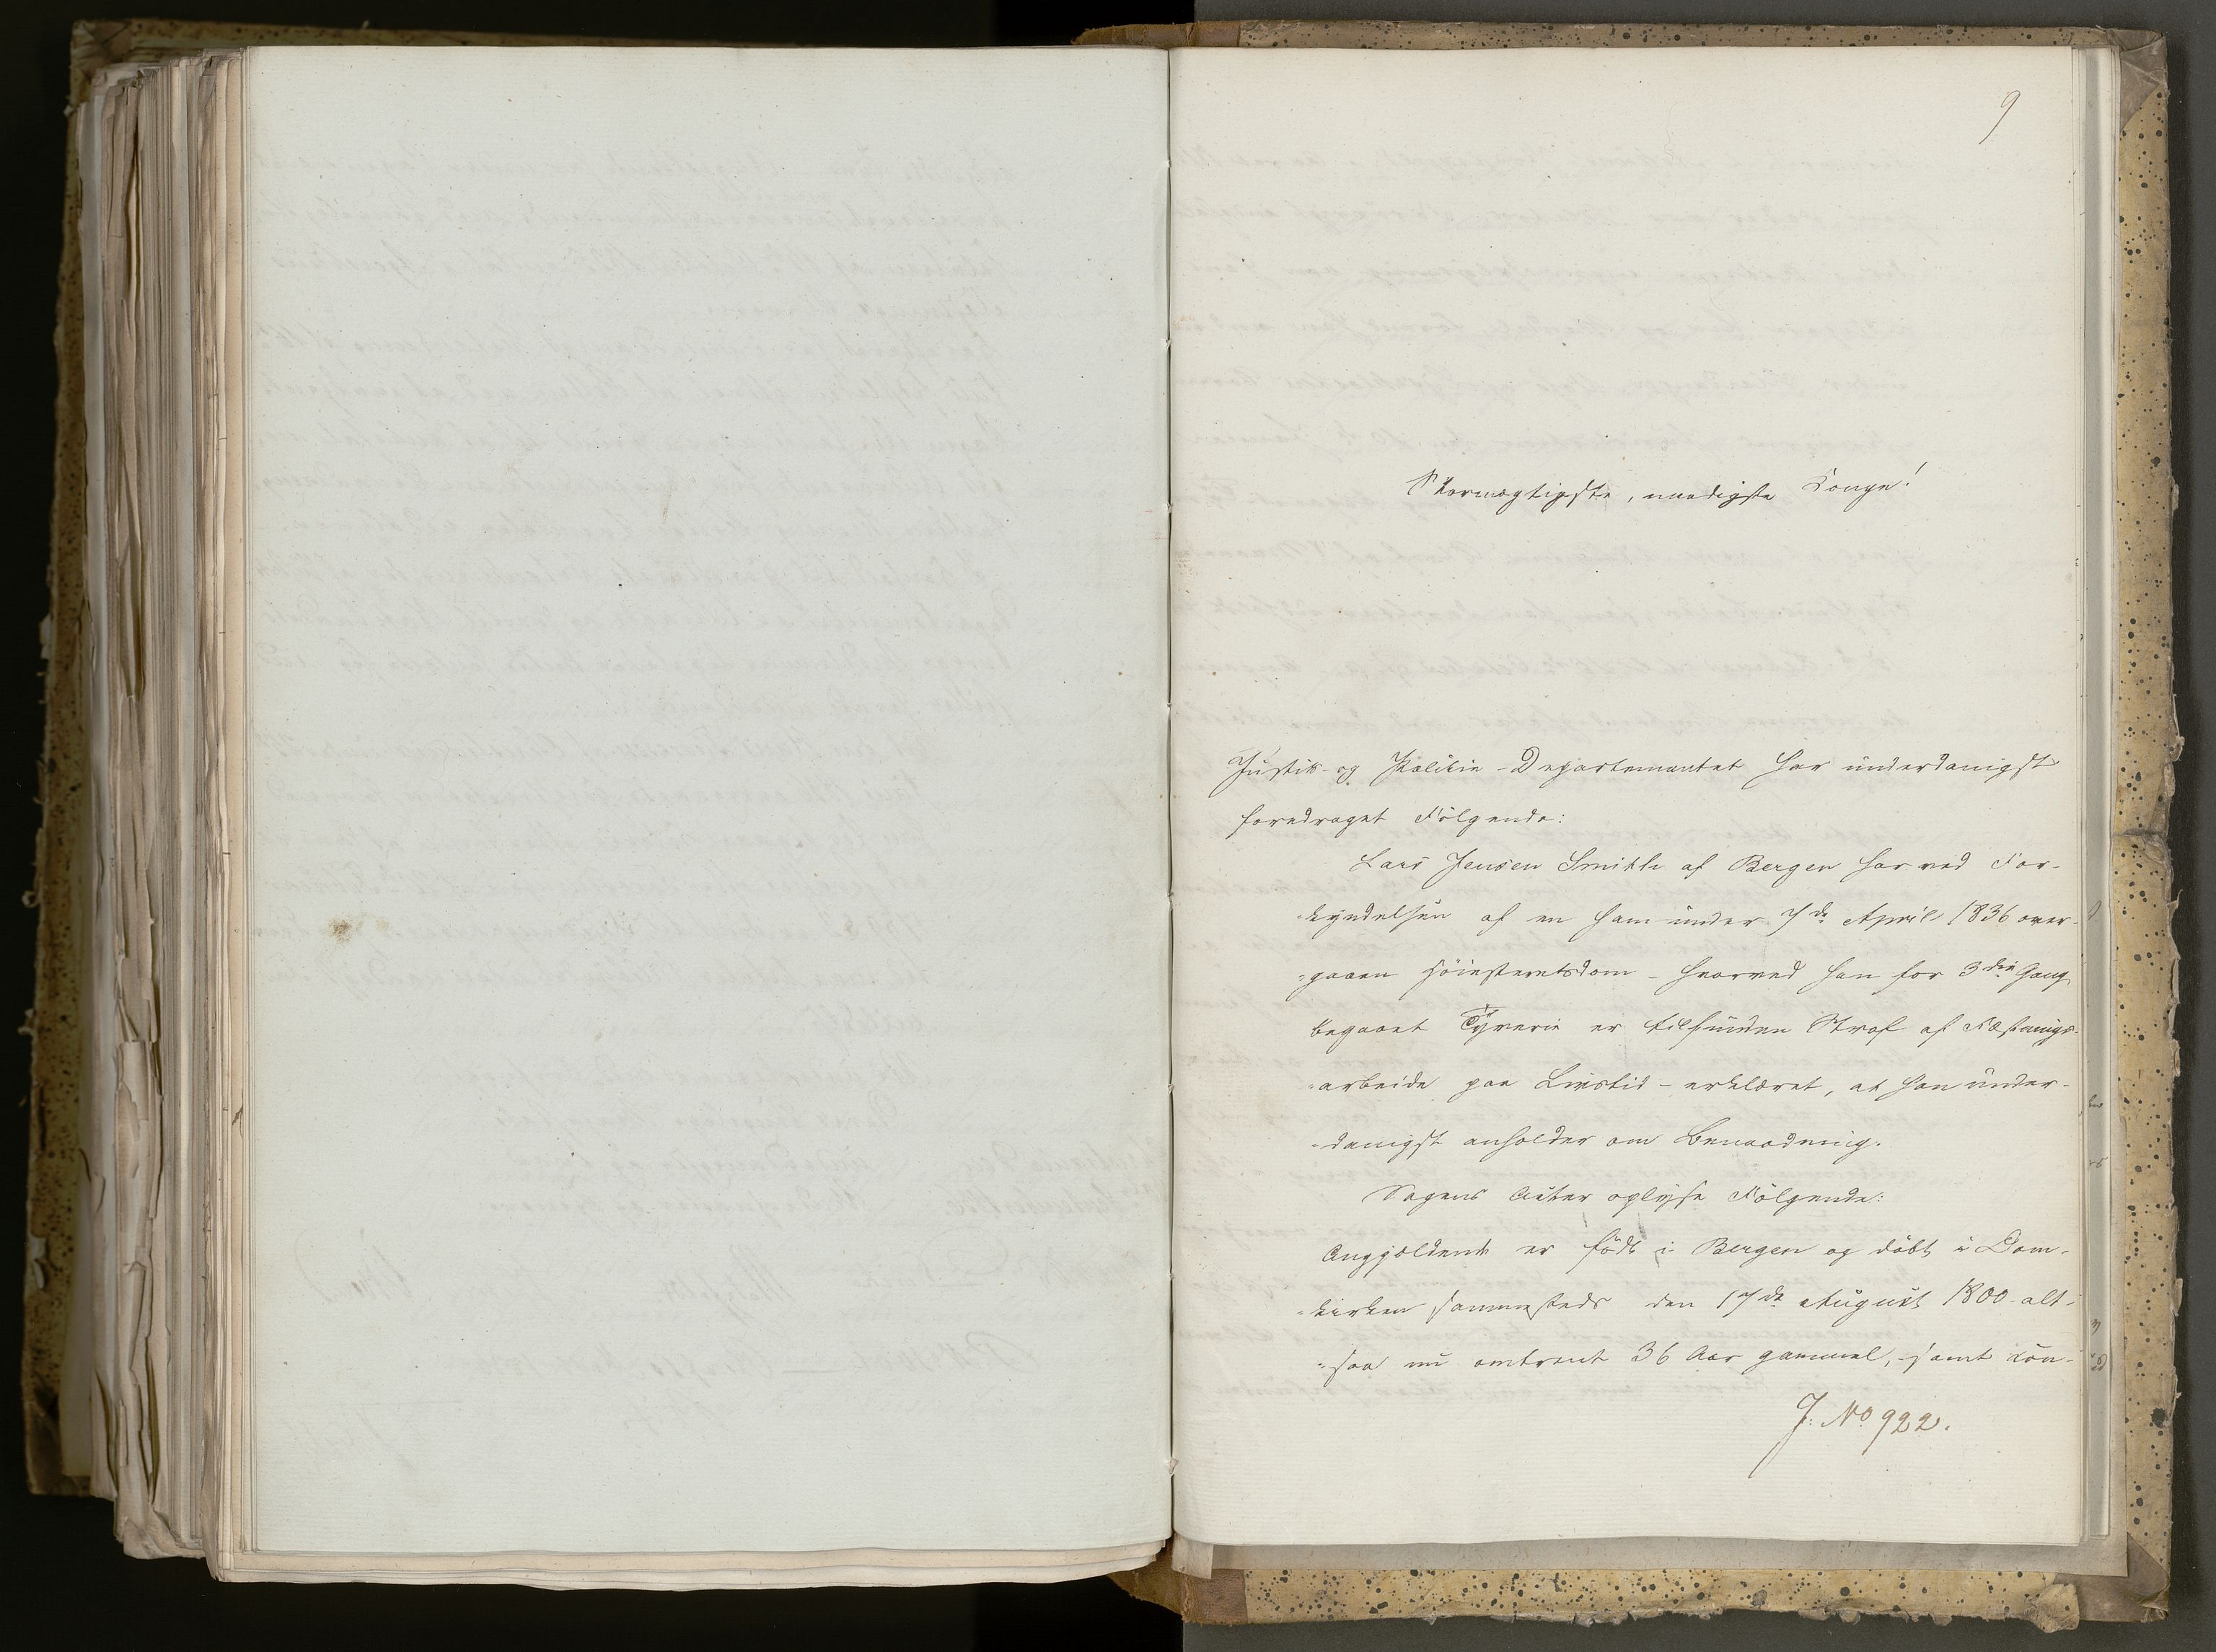 9
Stormægtigste, naadigste Konge!
Justits- og Politie-Departementet har underdanigst
foredraget Følgende:
Lars Jensen Smith af Bergen har ved For-
-kyndelsen af en ham under 7de April 1836 over-
-gaaen Høiesteretsdom - hvorved han for 3die Gang
begaaet Tyverie er tilfunden Straf af Fæstnings-
-arbeide paa Livstid - erklæret, at han under-
-danigst anholder om Benaadning.
Sagens Acter oplyse Følgende:
Angjældende er født i Bergen og døbt i Dom-
-kirken sammesteds den 17de August 1800 alt-
-saa nu omtrent 36 Aar gammel, samt con-
J: No 922.